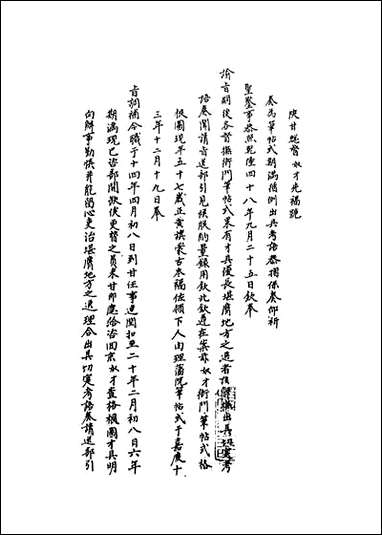 陝甘總督奴才先福跪
奏為筆帖式期滿循例出具考語恭摺保奏仰祈
聖鑒事恭照乾隆四十八年九月二十五日欽奉
諭旨嗣後各督撫衙門筆帖式果有才具優長堪膺地方之選者頂期滿出具切實考
語奏聞請旨送部引見候朕酌量錄用欽此欽遵在案茲奴才衙門筆帖式格
根圖現年五十七歲正黃旗蒙古本福佐領下人由理藩院筆帖式于嘉慶十
三年十二月十九日奉
旨調補今職于十四年四月初八日到甘任事連閏扣至二十年二月初八日六年
期滿現已咨部開缺俟更替之員來甘即應給咨回京奴才查格根圖才具明
向辦事勤慎并能留心吏治堪膺地方之選理合出具切實考語奏請送部引